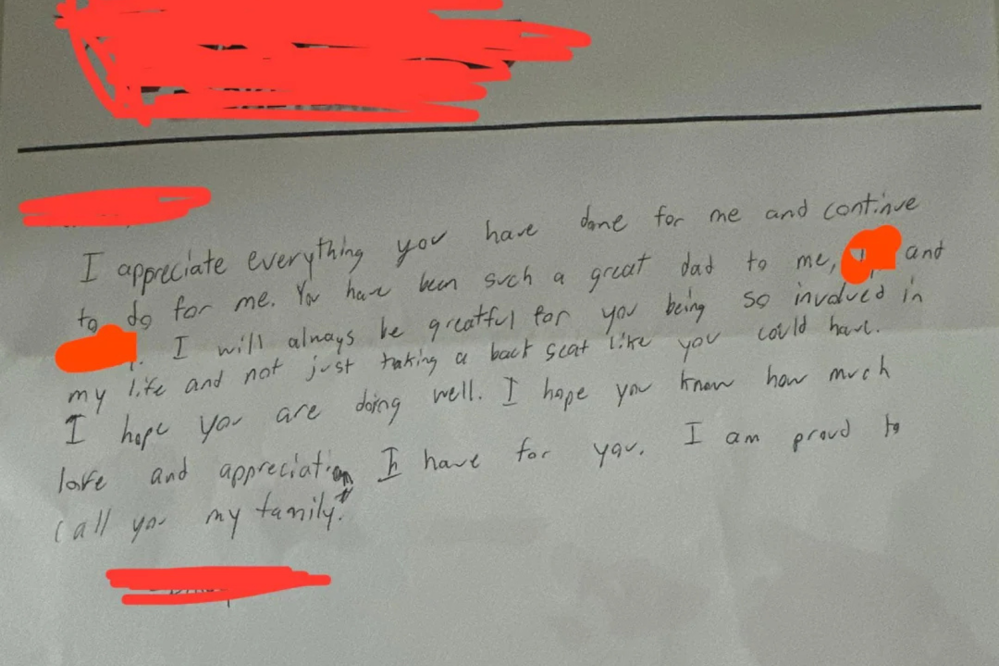 I appreciate everything you have done for me and continue
to do for me. You have been such a great dad to me, and
. I will always be greatful for you being so involved in
my life and not just taking a back seat like you could have.
I hope you are doing well. I hope you know how much
love and appreciation I have for you. I am proud to
call you my family.